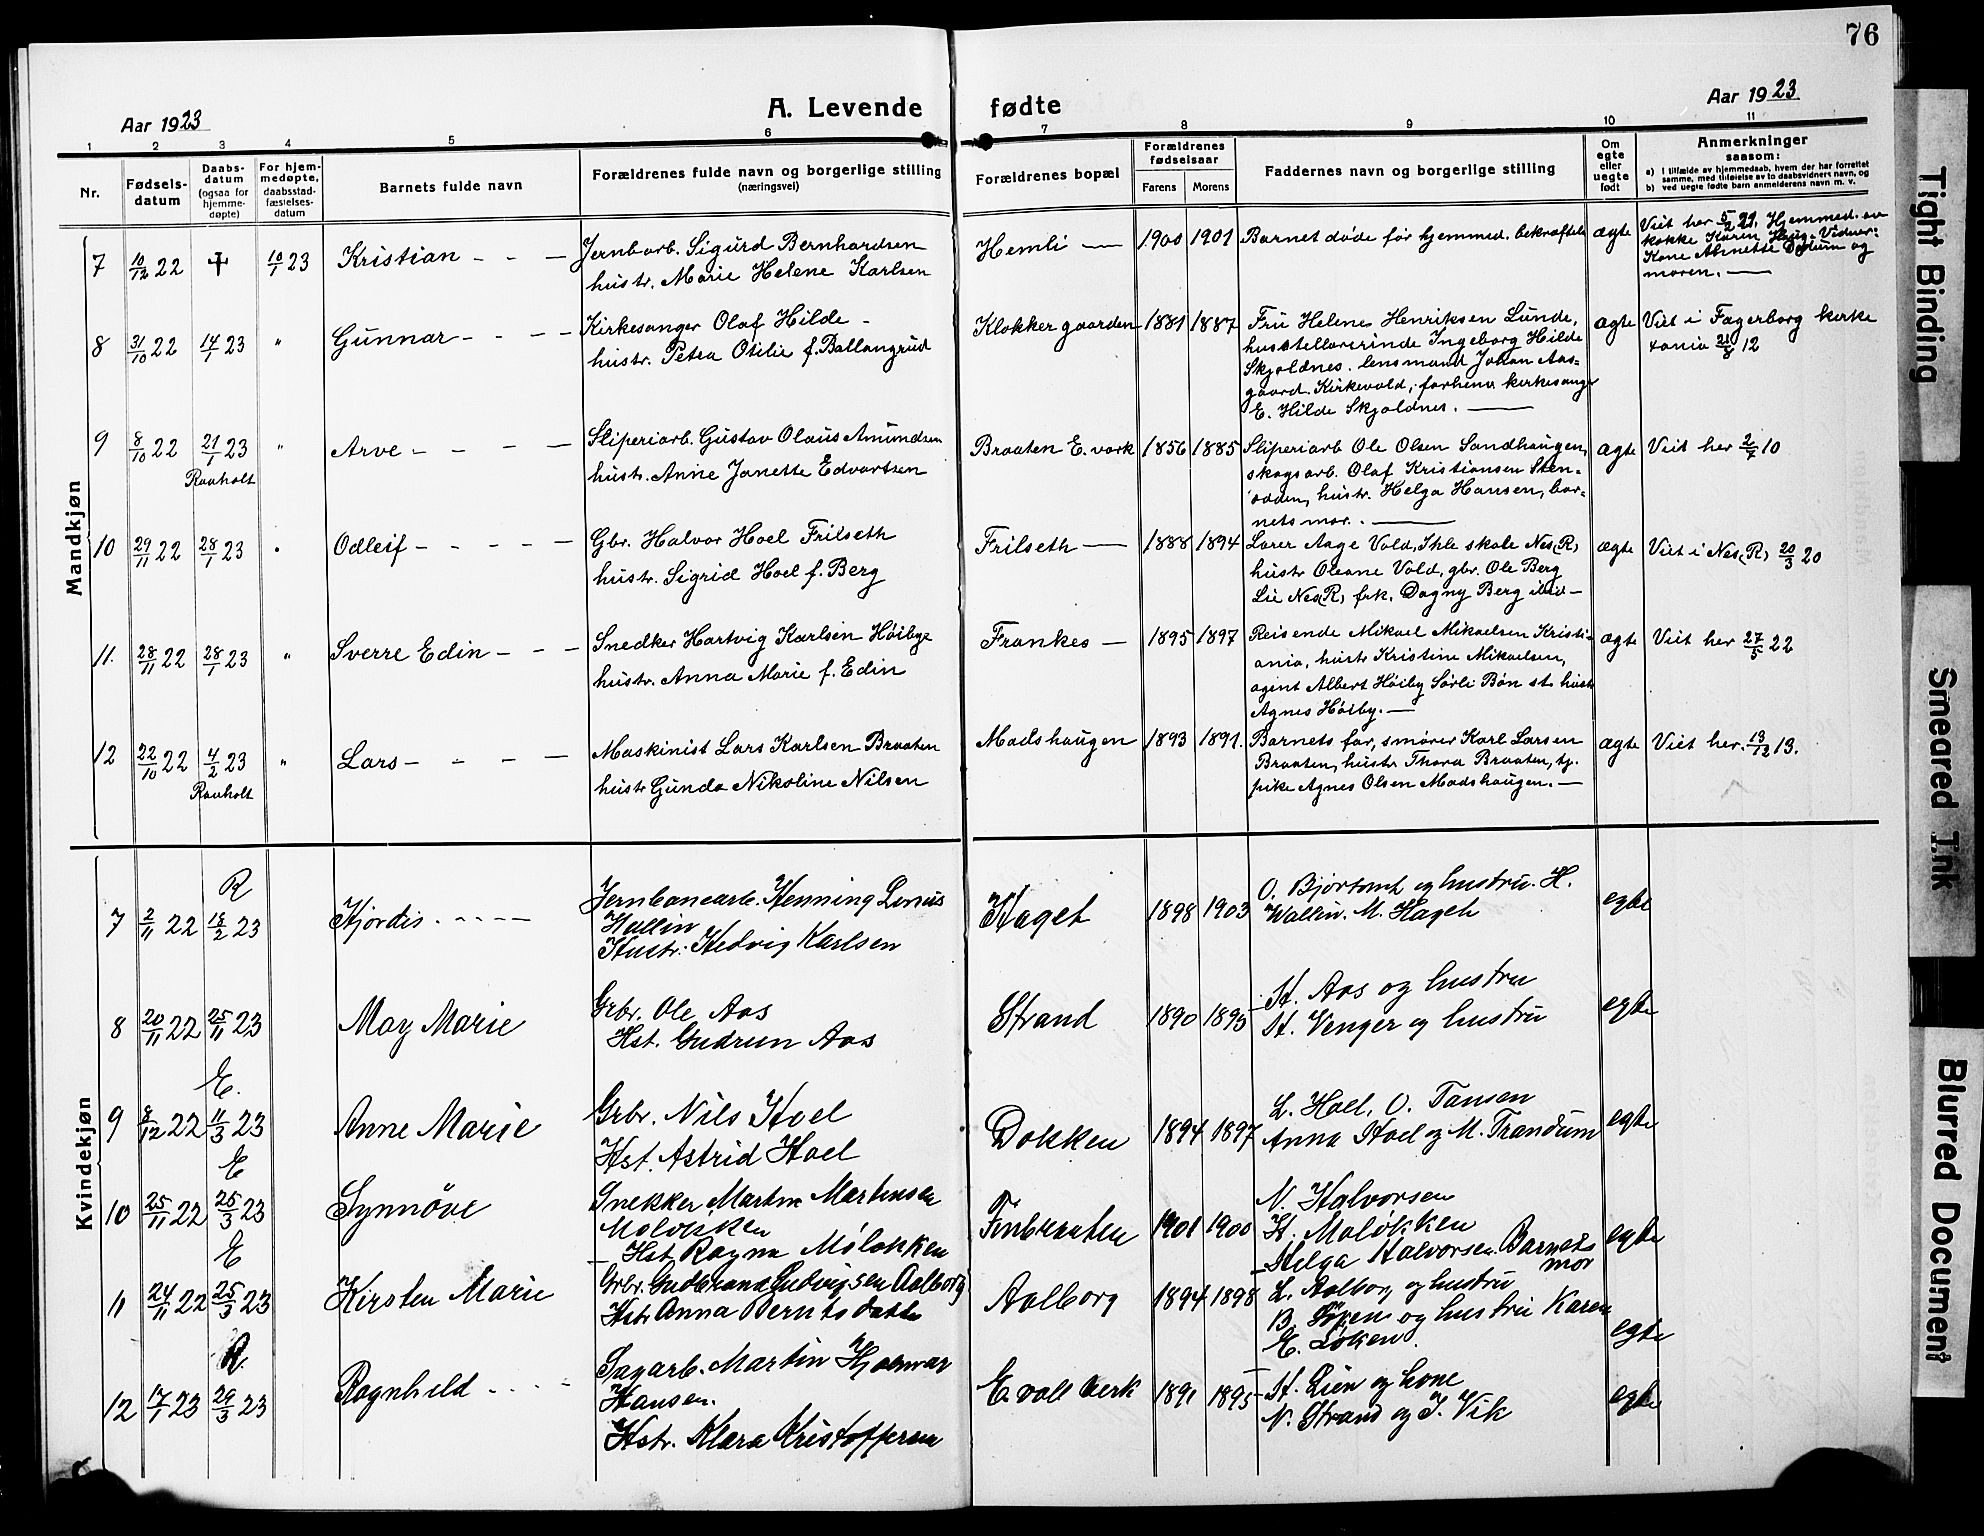 76
Aar 1923
A. Levende fødte
Aar 1923
1 2 3 4 5 6 7 8 9 10 11
Nr.
Fødsels-
datum
Daabs-
datum
(ogsaa for
hjemme-
døpte)
For hjem-
medøpte,
daabsstad-
fæstelses-
datum
Barnets fulde navn
Forældrenes fulde navn og borgerlige stilling
(næringsvei)
Forældrenes bopæl
Forældrenes
fødselsaar
Farens Morens
Faddernes navn og borgerlige stilling
Om
egte
eller
uegte
født
Anmerkninger
saasom:
a) i tilfælde av hjemmedaab, hvem der har forrettet
samme, med tilføielse av to daabsvidners navn, og
b) ved uegte fødte barn anmelderens navn m. v.
Mandkjøn
7 10/12 22 + 10/1 23 Kristian
Jernbarb. Sigurd Bernhardsen
hustr. Marie Helene Karlsen
Hemli 1900 1901
Barnet døde før hjemmed. bekræftels
ægte
Viet her 5/2 21. Hjemmed. av
kokke Karen Haug. Vidner:
Kone Annette Dahlum og
moren.
8 31/10 22 14/1 23 " Gunnar
Kirkesanger Olaf Hilde
hustr. Petra Otilie f. Ballangrud
Klokkergaarden 1881 1887
Fru Helene Henriksen Lunde,
husstellærerinde Ingeborg Hilde
Skjoldnes. lensmand Johan Aas-
gaard. Kirkevold, forhenv. kirkesang
E. Hilde Skjoldnes.
ægte
Viet i Fagerborg kirke
xania 21/8 12
9 8/10 22 21/1 23 " Arve
Raaholt
Sliperiarb. Gustav Olaus Amundsen
hustr. Anne Janette Edvartsen
Braaten E. værk 1856 1885
Sliperiarb Ole Olsen Sandhaugen,
skogsarb. Olaf Kristiansen Sten-
odden, hustr. Helga Hansen, bar-
nets mor.
ægte
Viet her 2/7 10
10 29/11 22 28/1 23 " Odleif
Gbr. Halvor Hoel Frilseth
hustr. Sigrid Hoel f. Berg
Frilseth 1888 1894
Lærer Aage Vold, Ihle skole Nes (R)
hustr Oleane Vold, gbr. Ole Berg
Lie Nes(R), frk. Dagny Berg ibid
ægte
Viet i Nes (R) 20/3 20
11. 28/11 22 28/1 23 " Sverre Edin
Snedker Hartvig Karlsen Høibye
hustr. Anna Marie f. Edin
Frankes 1895 1897
Reisende Mikael Mikaelsen Kristi-
ania, hustr Kristine Mikaelsen,
agent Albert Høiby Sørli Bøn st. hustr
Agnes Høiby.
ægte
Viet her 27/5 22
12 22/10 22 4/2 23 " Lars
Raaholt
Maskinist Lars Karlsen Braaten
hustr Gunda Nikoline Nilsen
Madshaugen 1893 1891.
Barnets far, smører Karl Larsen
Braaten, hustr Thora Braaten, tj.
pike Agnes Olsen Madshaugen.
ægte
Viet her. 13/12 13.
Kvindekjøn
R
7 2/11 22 18/2 23 Hjørdis
Jernbanearb. Henning Linus
Hallin
Hustr: Hedvig Karlsen
Haget 1898 1903
O. Bjørtomt og hustru. H.
Wallin. M. Haget
egte
8 20/11 22 25/11 23 May Marie
Grbr. Ole Aas
Hst. Gudrun Aas
Strand 1890 1895
St. Aas og hustru
St. Venger og hustru
egte
E.
9 8/12 22 11/3 23 Anne Marie
Grbr. Nils Hoel
Hst. Astrid Hoel
Dokken 1894 1897
L. Hoel, O. Tansen
Anna Hoel og M. Trandum
egte
E
10 25/11 22 25/3 23 Synnøve
Snekker Martin Martinsen
Moløkken
Hst. Ragna Moløkken
Finbraaten 1901 1900
N. Halvorsen
K. Moløkken
Helga Halvorsen. Barnets
mor
egte
E
11 24/11 22 25/3 23 Kirsten Marie
Grbr. Gudbrand Ludvigsen Aalborg
Hst. Anna Berntsdatter
Aalborg 1894 1898
L. Aalborg og hustru
B. Løken og hustru Karen
E. Løken.
egte
R.
12 17/1 23 29/3 23 Ragnhild
Sagarb. Martin Hjalmar
Hansen.
Hstr. Klara Kristoffersen
E. voll verk 1891 1895
St. Lien og kone
N. Strand og J. Vik
egte
Tight Binding
Smeared Ink
Blurred Document